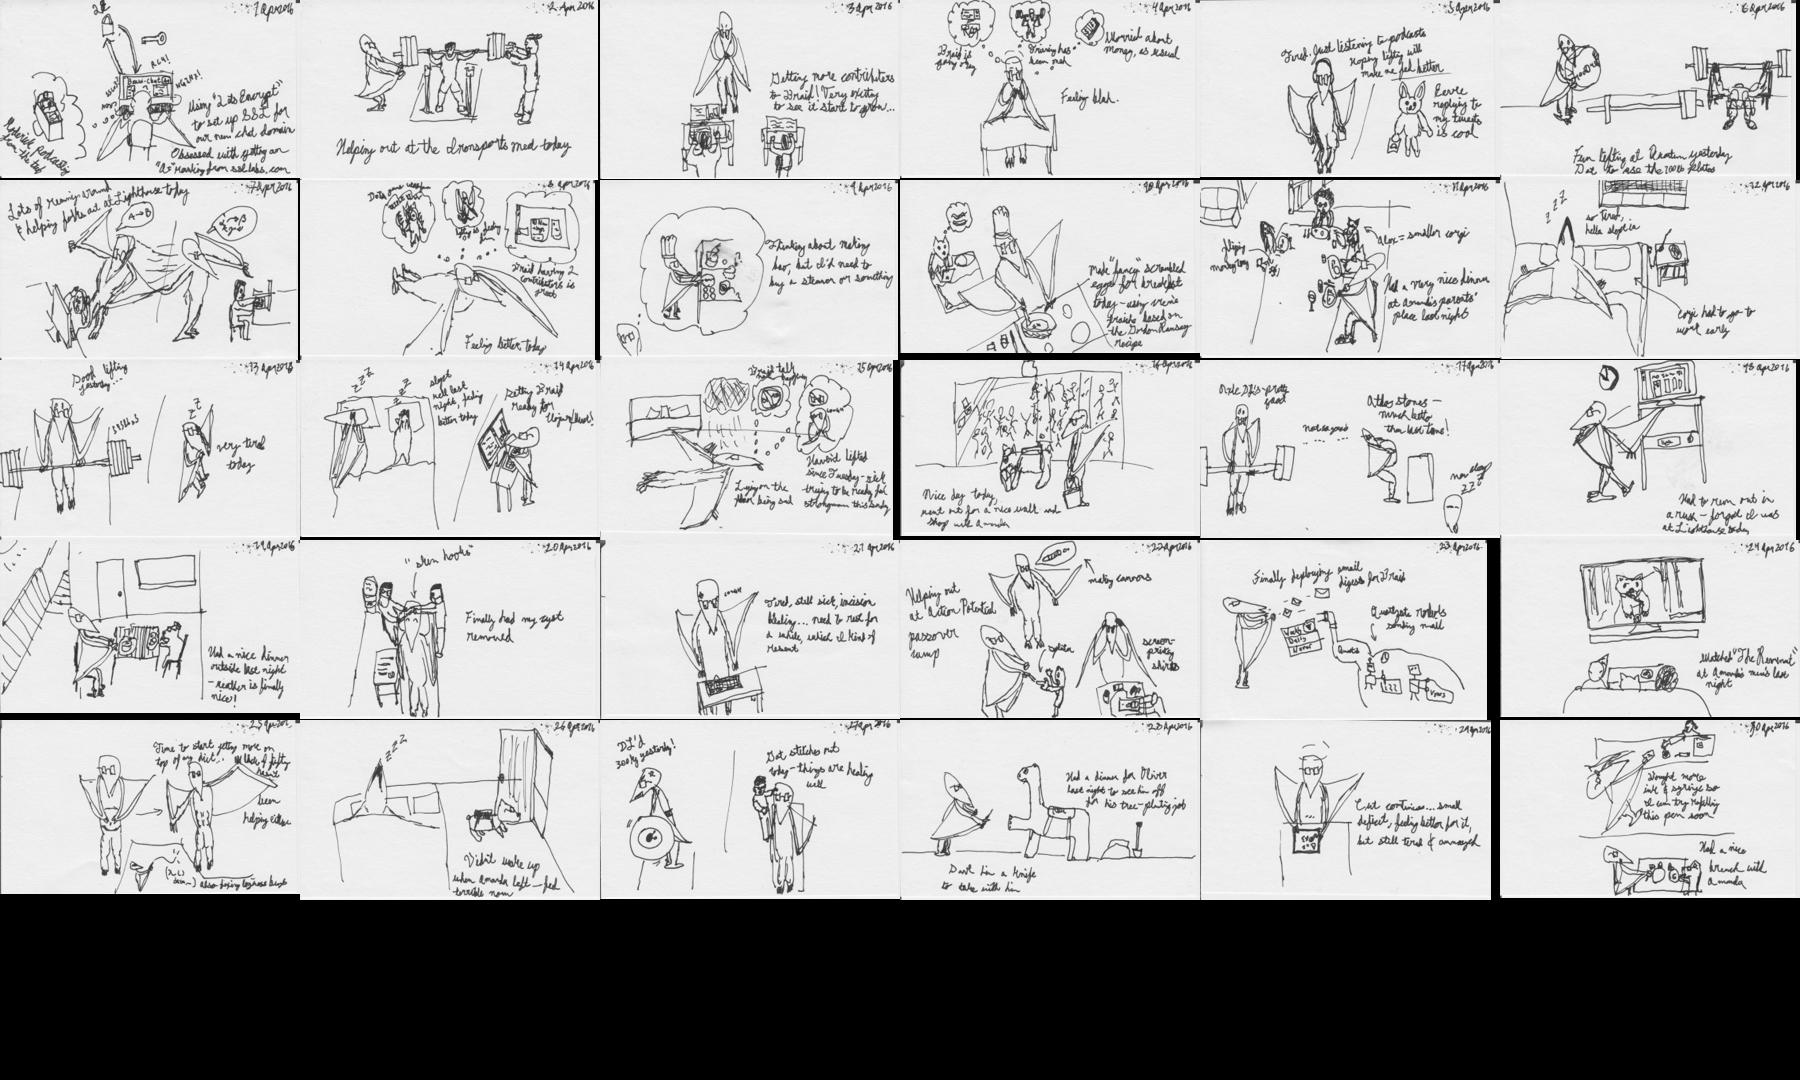 1 Apr 2016
Using "Lets Encrypt"
to set up SSL for
our new chat domain
Obsessed with getting an
"A+" ranking from ssllabs.com
2 Apr 2016
Helping out at the Ironsports meet today
3 Apr 2016
Getting more contributers
to Braid! Very exciting
to see it start to grow...
4 Apr 2016
Braid is
going okay
Training has
been meh
Worried about
money, as usual
Feeling blah.
5 Apr 2016
Tired. Just listening to podcasts
hoping lifting will
make me feel better
replying to
my tweets
is cool
6 Apr 2016
Fun lifting at Quantum yesterday
Got to use the 100lb plates
7 Apr 2016
Lots of running around
& helping folks out at Lighthouse today
A→B
8 Apr 2016
Braid having 2
contributors is
great
Feeling better today
9 Apr 2016
Thinking about making
bao, but I'd need to
buy a steamer or something
10 Apr 2016
Made "fancy" scrambled
eggs for breakfast
today - using creme
fraiche based on
the Gordon Ramsay
recipe
11 Apr 2016
Alex = smaller corgi
Had a very nice dinner
at Amanda's parents'
place last night
12 Apr 2016
z z z
so tired,
hella slept in
corgi had to go to
work early
13 Apr 2016
Good lifting
yesterday...
z z z
very tired
today
14 Apr 2016
z z z
z z z
slept
well last
night, feeling
better today
Getting Braid
ready for
Clojure/West!
15 Apr 2016
Braid talk
not happening
Haven't lifted
since Tuesday - sick
trying to be ready for
strongman this Sunday
Lying on the
floor being sad
16 Apr 2016
Nice day today,
went out for a nice walk and
shop with Amanda
17 Apr 2016
Axle DLs - pretty
good
not so good
....
Atlas stones -
much better
than last time!
now sleep
z z z
18 Apr 2016
Had to run out in
a rush - forgot I was
at Lighthouse today
19 Apr 2016
Had a nice dinner
outside last night
- weather is finally
nice!
20 Apr 2016
"skin hooks"
Finally had my cyst
removed
21 Apr 2016
Tired, still sick, incision
healing... need to rest for
a while, which I kind of
resent
22 Apr 2016
Helping out
at Action Potential
passover
camp
making cannons
screen-
printing
shirts
23 Apr 2016
Finally deploying email
digests for Braid
Quartzite robots
sending mail
24 Apr 2016
Watched "The Revenant"
at Amanda's mum's last
night
25 Apr 2016
Time to start getting more on
top of my diet...
been
helping
also fixing
26 Apr 2016
z z z z
Didn't wake up
when Amanda left - feel
terrible now
27 Apr 2016
DL'd
300kg yesterday!
Got stitches out
today - things are healing
well
28 Apr 2016
Had a dinner for Oliver
last night to see him off
for his tree-planting job
Got him a knife
to take with him
29 Apr 2016
Cut continues... small
deficit, feeling better for it,
but still tired & annoyed
30 Apr 2016
Bought more
ink & syringe so
I can try refilling
this pen soon!
Had a nice
brunch with
Amanda